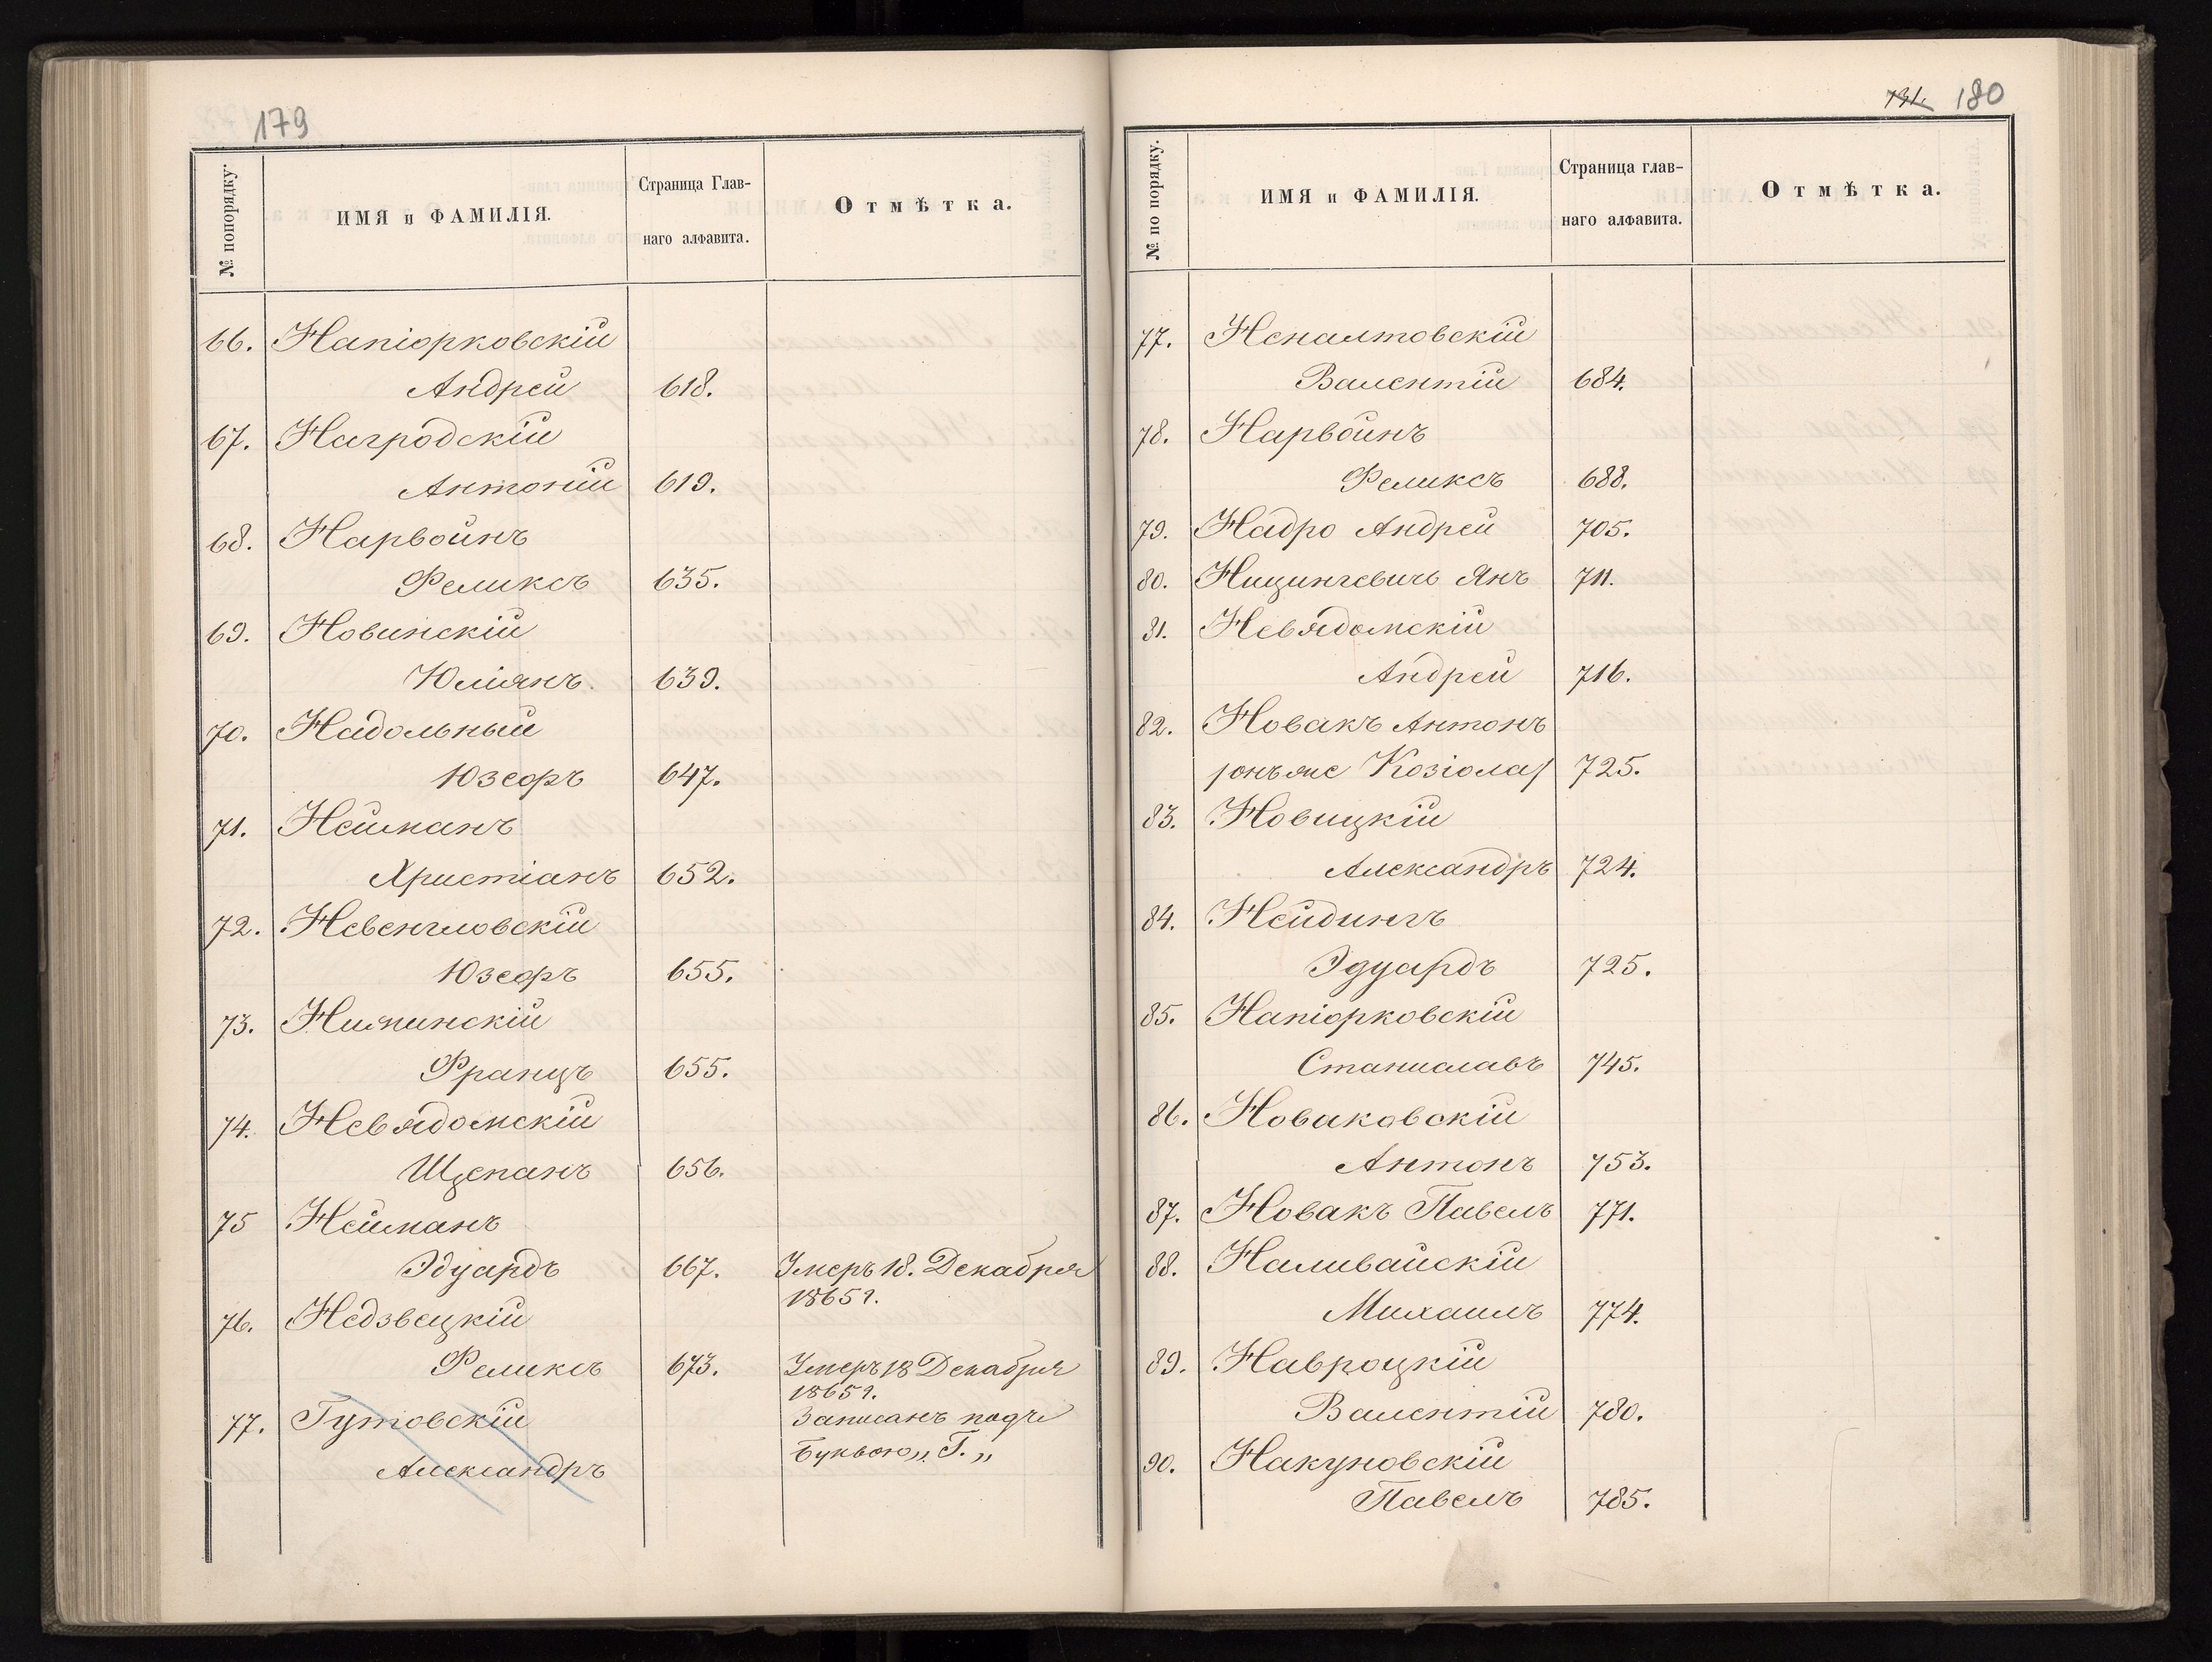 179
№ попорядку.
ИМЯ и ФАМИЛІЯ.
Страница Глав-
наго алфавита.
Отмѣтка.
66. Напіорковскій
Андрей 618.
67. Нагродскій
Антоній 619.
68. Нарвойнъ
Феликсъ 635.
69. Новинскій
Юліянъ. 639.
70. Надольный
Юзефъ 647.
71. Нейманъ
Христіанъ 652.
72. Невенгловскій
Юзефъ 655.
73. Нипинскій
Францъ 655.
74. Невядомскій
Щепанъ 656.
75 Нейманъ
Эдуардъ 667. Умеръ 18. Декабря
1865 г.
76. Недзвецкій
Феликсъ 673. Умеръ 18 Декабря
1865 г.
77. Гутовскій Записанъ подъ
Буквою „Г.„
Александръ
731. 180
№ по порядку.
ИМЯ и ФАМИЛІЯ.
Страница глав-
наго алфавита.
Отмѣтка.
77. Непалтовскій
Валентій 684.
78. Нарвойнъ
Феликсъ 688.
79. Надро Андрей 705.
80. Ницингевичъ Янъ 711.
81. Невядомскій
Андрей 716.
82. Новакъ Антонъ
/онъ же Козіола/ 725.
83. Новицкій
Александръ 724.
84. Нейдингъ
Эдуардъ 725.
85. Напіорковскій
Станиславъ 745.
86. Новаковскій
Антонъ 753.
87. Новакъ Павелъ 771.
88. Наливайскій
Михаилъ 774.
89. Навроцкій
Валентій 780.
90. Накуновскій
Павелъ 785.